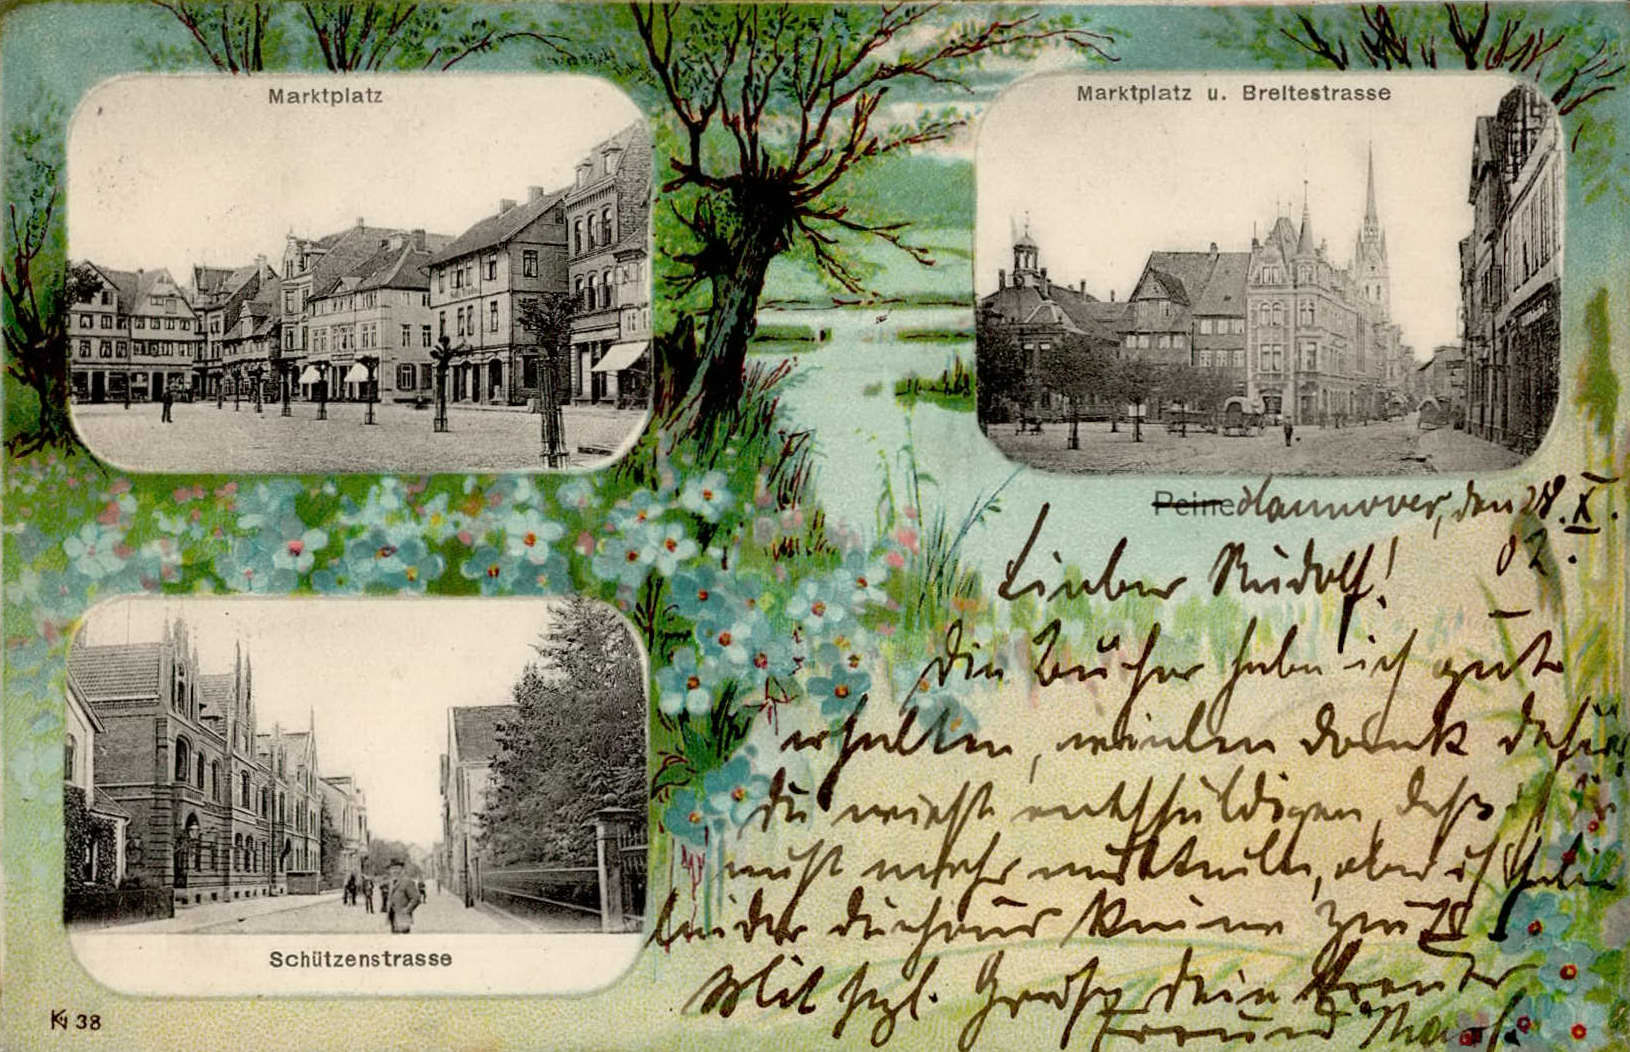 Marktplatz
Marktplatz u. Breitestrasse
Peine Hannover, den 28. X.
02.
Lieber Rudolf!
Die Bücher habe ich gut
erhalten, vielen Dank dafür
Du entschuldigen, daß
nicht mehr mitteile, aber ich habe
leider durchaus keine Zeit
Mit hzl. Gruß Dein treuer
Freund
Schützenstrasse
38